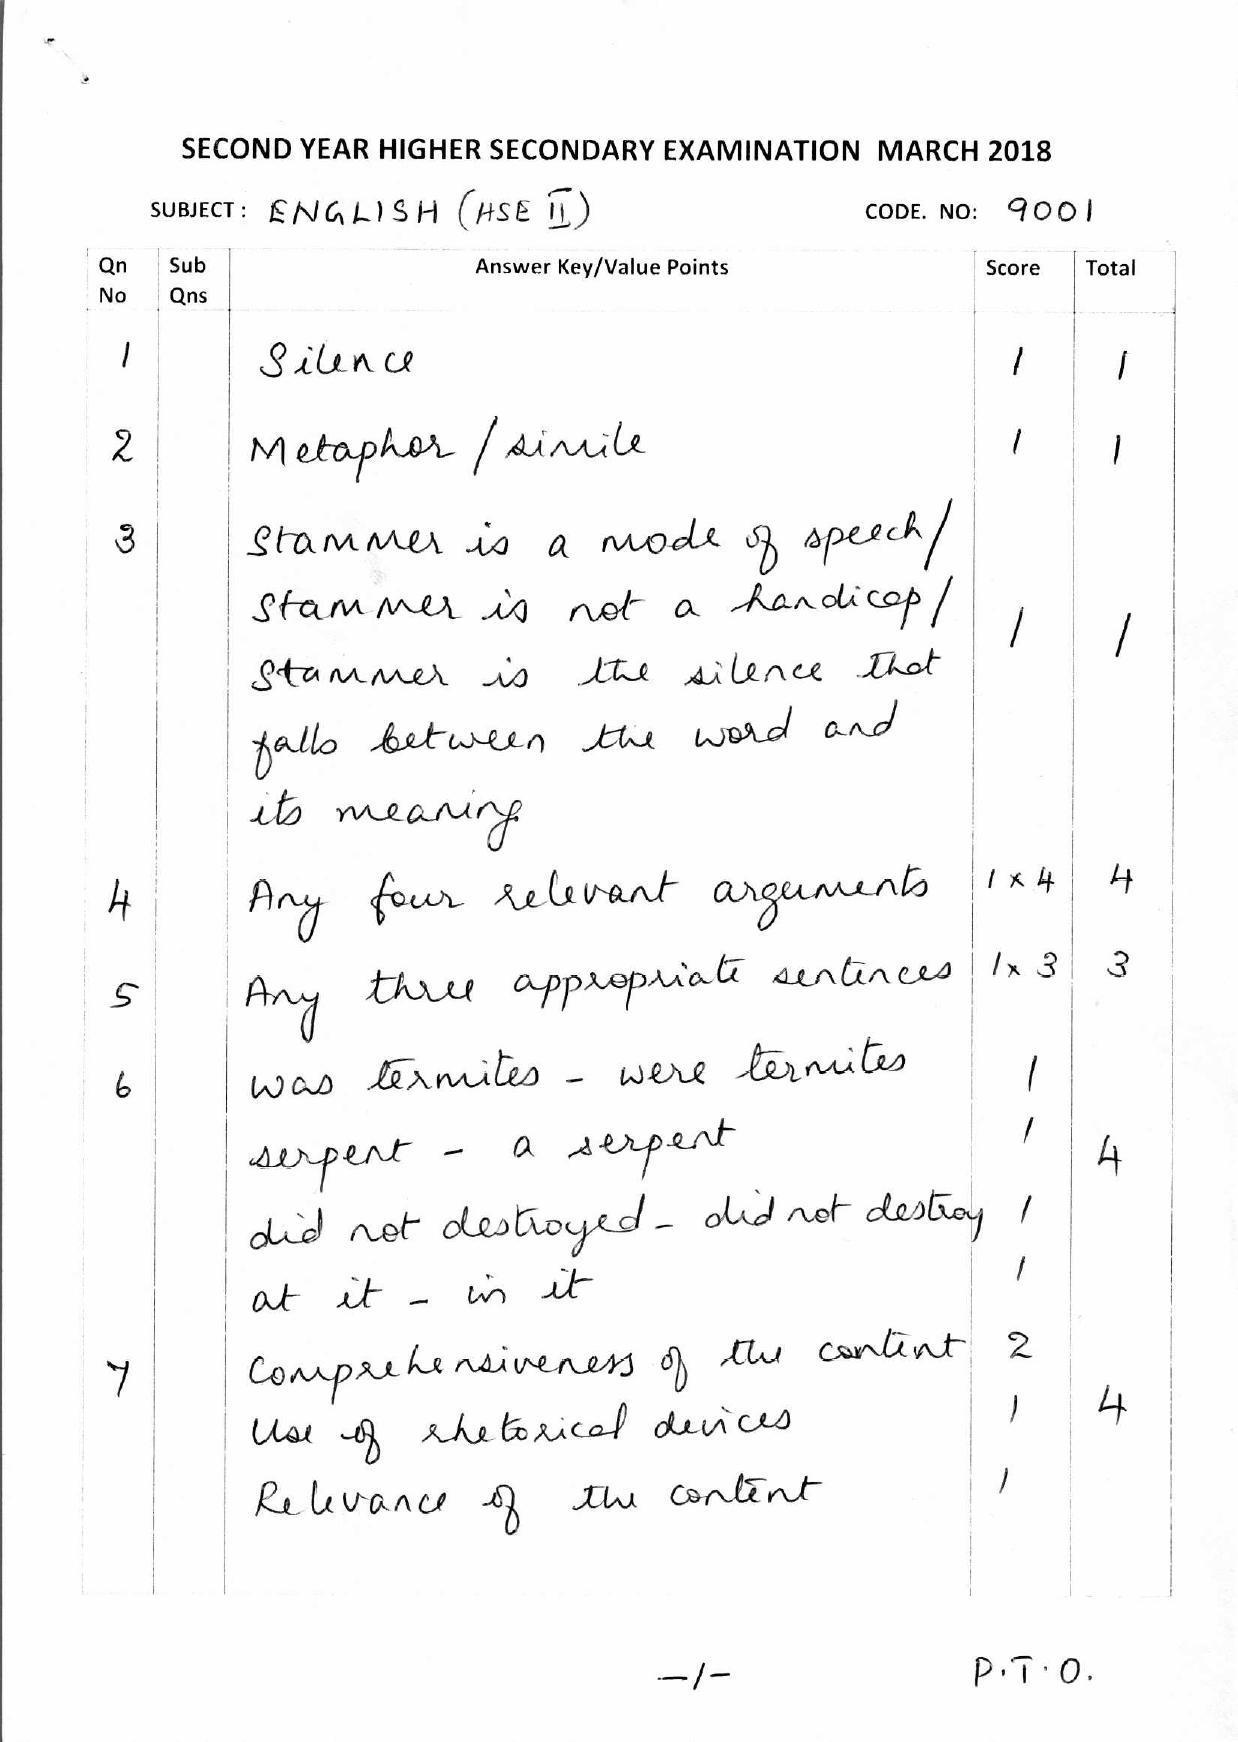 SECOND YEAR HIGHER SECONDARY EXAMINATION MARCH 2018
SUBJECT: ENGLISH (HSE II) CODE. NO: 9001
Qn No Sub Qns Answer Key/Value Points Score Total
1 Silence 1 1
2 Metaphor / simile 1 1
3 Stammer is a mode of speech/
Stammer is not a handicap/ 1 1
Stammer is the silence that
falls between the word and
its meaning
4 Any four relevant arguments 1 x 4 4
5 Any three appropriate sentences 1 x 3 3
6 was termites - were termites 1
serpent - a serpent 1 4
did not destroyed - did not destroy 1
at it - in it 1
7 Comprehensiveness of the content 2
Use of rhetorical devices 1 4
Relevance of the content 1
-1- P.T.O.